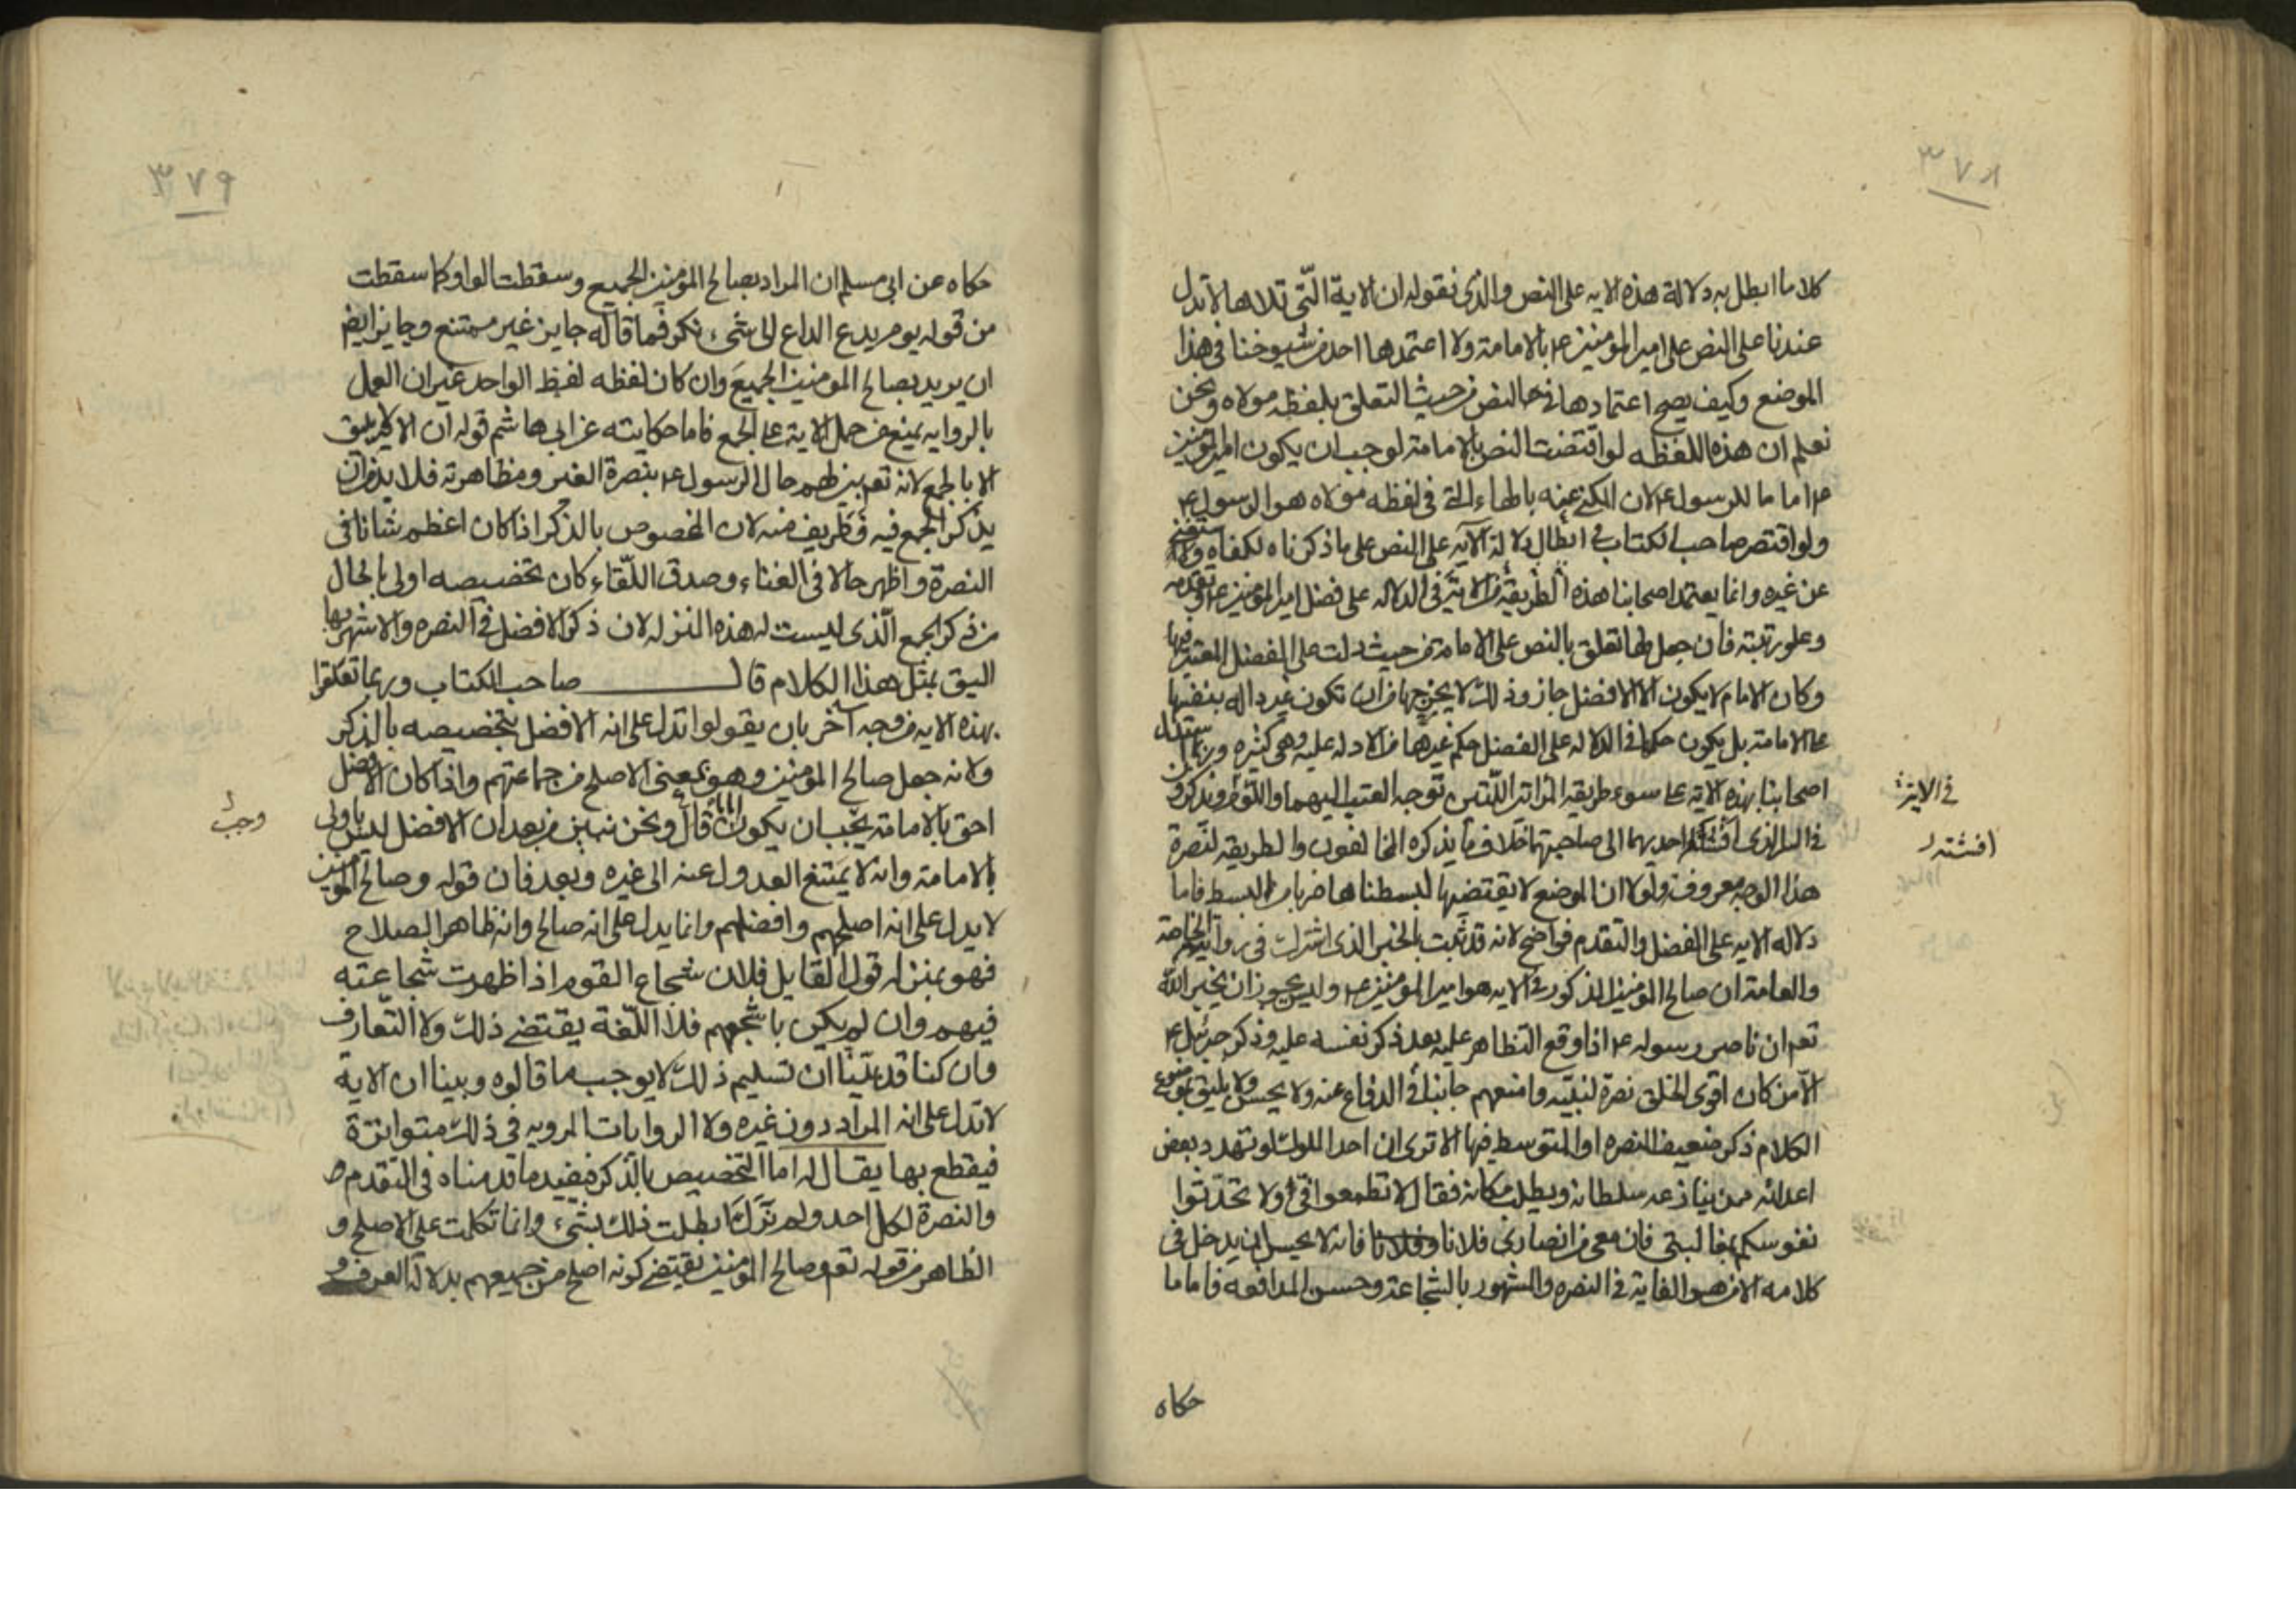 ٣٧٨
كلاما ابطل به دلالة هذه الايه على النص والذى نقوله ان الاية الّتى تلاها لا تدل
عندنا على النص على امير المؤمنين ع بالامامة ولا اعتمدها احد من شيوخنا فى هذا
الموضع وكيف يصح اعتمادها فى النص من حيث التعلق بلفظه مولاه ونحن
نعلم ان هذه اللفظه لو اقتضت النص بالامامة لوجب ان يكون امير المؤمنين
ع اماما للرسول ع لان المكنى عنه بالهاء التى فى لفظه مولاه هو الرسول ع
ولو اقتصر صاحب الكتاب فى ابطال دلالة الآيه على النص على ما ذكرناه لكفاه
عن غيره وانما يعتمد اصحابنا هذه الطريقة من الاية فى الدلاله على فضل امير المؤمنين ع وتقدمه
وعلو رتبته فان جعل لها تعلق بالنص على الامامة من حيث دلت على الفضل المعتبر فيها
وكان الامام لا يكون الا الافضل جاز وذلك لا يخرجها من ان تكون غير داله بنفسها
على الامامة بل يكون حكمها فى الدلاله على الفضل حكم غيرها من الادله عليه وهى كثيره وربما استدل
اصحابنا بهذه الآية على سوء طريقه المراتين اللتين توجه العتب اليهما واللوم ويذكرون
فى السر الذى افشته احديهما الى صاحبتها خلاف ما يذكره المخالفون والطريقه لنصرة
هذا الوجه معروفه ولولا ان الموضع لا يقتضيها لبسطناها ضربا من البسط فاما
دلاله الايه على الفضل والتقدم فواضح لانه قد ثبت بالخبر الذى اشترك فى روايته الخاصة
والعامة ان صالح المؤمنين المذكور فى الايه هو امير المؤمنين ع وليس يجوز ان يخبر الله
تعم ان ناصر رسوله ع اذا وقع التظاهر عليه بعد ذكر نفسه عليه وذكر جبرئيل ع
الّا من كان اقوى الخلق نصرة لنبيّه وامنعهم جانبا فى الدفاع عنه ولا يحسن ولا يليق بموضوع
الكلام ذكر ضعيف النصره او المتوسط فيها الا ترى ان احد الملوك لو تهدد بعض
اعدائه ممن ينازعه سلطانه ويطلب مكانه فقال لا تطمعوا فىّ ولا تحدّثوا
نفوسكم بمغالبتى فان معى من انصارى فلانا وفلانا فانه لا يحسن ان يدخل فى
كلامه الا من هو الغاية فى النصره والمشهور بالشجاعة وحسن المدافعه فاما ما
فى الاية
افشته
حكاه
٣٧٩
حكاه عن ابى مسلم ان المراد بصالح المؤمنين الجميع وسقطت الواو كما سقطت
من قوله يوم يدع الداع الى شىء نكر فما قاله جايز غير ممتنع وجايز ايض
ان يريد بصالح المومنين الجميع وان كان لفظه لفظ الواحد غير ان العمل
بالروايه يمنع من حمل الاية على الجمع فاما حكايته عن ابى هاشم قوله ان الا يليق
الا بالجمع لانه تعم بين لهم حال الرسول ع بنصرة الغير ومظاهرته فلا بد من ان
يذكر الجمع فيه فطريف منه لان المخصوص بالذكر اذا كان اعظم شانا فى
النصرة واظهر حالا فى الغناء وصدق اللّقاء كان تخصيصه اولى بالحال
من ذكر الجمع الّذى ليست له هذه المنزله لان ذكر الافضل فى النصره والاشهر بها
اليق بمثل هذا الكلام قال صاحب الكتاب وربما تعلقوا
بهذه الايه من وجه آخر بان يقولوا تدل على انه الافضل بتخصيصه بالذكر
ولانه جعل صالح المؤمنين وهو بمعنى الاصلح من جماعتهم واذا كان الافضل
احق بالامامة يجب ان يكون اماما قال ونحن نبين من بعد ان الافضل ليس باولى
بالامامة وانه لا يمتنع العدول عنه الى غيره وبعد فان قوله وصالح المؤمنين
لا يدل على انه اصلحهم وافضلهم وانما يدل على انه صالح وانه ظاهر الصلاح
فهو بمنزله قول القايل فلان شجاع القوم اذا ظهرت شجاعته
فيهم وان لم يكن باشجعهم فلا اللّغة يقتضى ذلك ولا التّعارف
وان كنا قد بيّنا ان تسليم ذلك لا يوجب ما قالوه وبينا ان الاية
لا تدل على انه المراد دون غيره ولا الروايات المرويه فى ذلك متواترة
فيقطع بها يقال له اما التخصيص بالذكر فيفيد ما قدمناه فى التقدم
والنصرة لكل احد ولم نرك ابطلت ذلك بشىء وانما تكلمت على الاصلح و
الظاهر من قوله تعم وصالح المؤمنين يقتضى كونه اصلح من جميعهم بدلالة العرف و
وجب